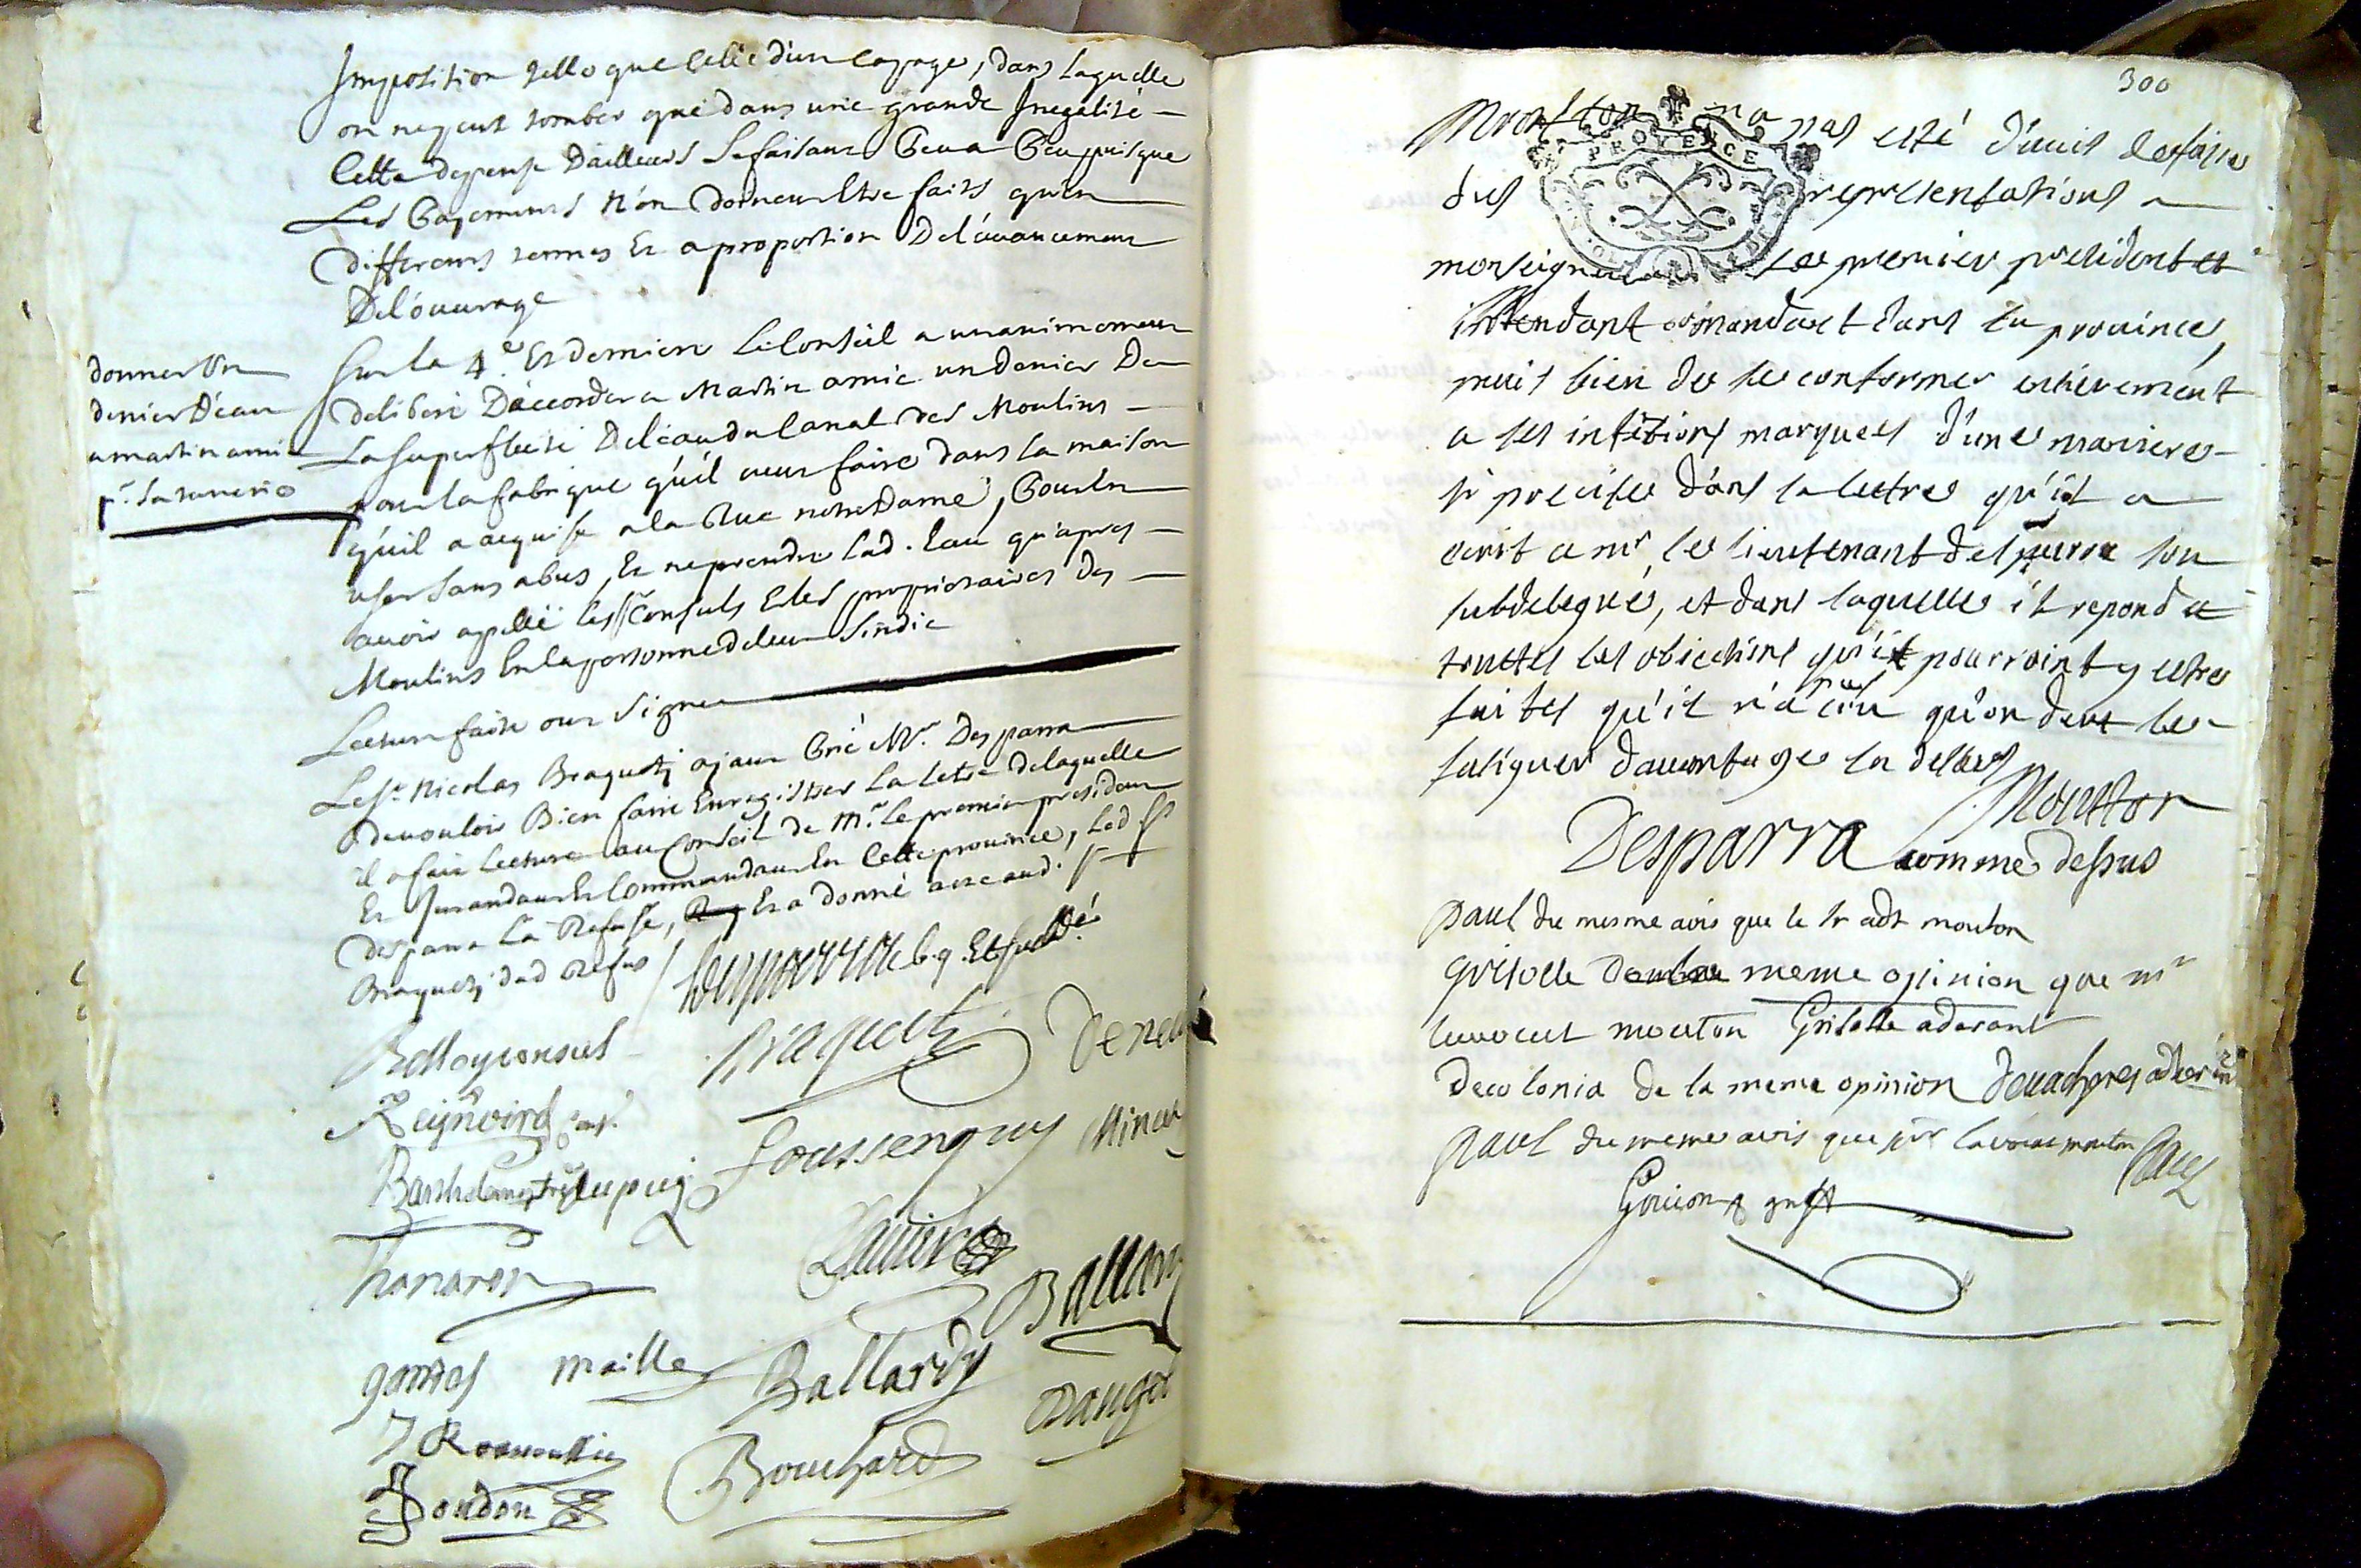 Imposition telle que Celle d'un Capage, dans laquelle
on ne peut tomber que dans une grande Inegalité
Cette depense D'ailleurs Se faisant Peu a Peu puisque
Les Payemens N'en doivent Etre faits qu'en
differens termes Et a proportion De l'avancement
De l'ouvrage
donner Un
denier d'eau
a martin amic
pr. sa tanerie
Sur la 4e. Et derniere Le Conseil a unanimement
deliberé D'accorder a Martin amic un denier De
La Superfluité De l'eau du Canal des Moulins
pour la fabrique qu'il veut faire dans la maison
qu'il a aquise a la Rue notre Dame, Pour En
user Sans abus, Et ne prendre lad. Eau qu'apres
avoir apellé les Srs Consuls Et les proprietaires des
Moulins En la personne de leur Sindic
Lecture faite ont Signé
Le Sr. Nicolas Braquety ajant Prié Mr. Desparra
de vouloir Bien faire Enregistrer La Letre de laquelle
il a fait Lecture au Conseil de Mr. le premier president
Et Intendant Et Commandant En Cette province, led Sr
Desparra La Refusé, Et a donné acte aud. Sr
Braquety dud Refus
Desparra l. g. Et subdé.
Belloy consul
Braquety
Reijnoird Cons.
Foussenquy
Barthelemy
Thanaron
Lauier
Ballard
gantes
maille
Ballardy
Bouchard
Daudon
300
Mouton na pas esté d'avis de faire
des representations a
monseigneur Le premier president et
intendant comandant dans la province,
mais bien de se conformer entierement
a ses intétions marquees d'une maniere
si precise dans la lettre qu'il a
ecrit a mr le lieutenant desparra son
subdelegué, et dans laquelle il repond a
touttes les objections qui pourroint y estre
faites qu'il n'a pas cru qu'on deut le
fatiguer davantage la dessus
Mouton
Desparra comme dessus
paul du mesme avis que le sr adt mouton
grisolle de meme opinion que mr
lavocat mouton Grisolle aderant
decolonia de la meme opinion
paul du meme avis que mr lavocat mouton Paul
Goujon greff